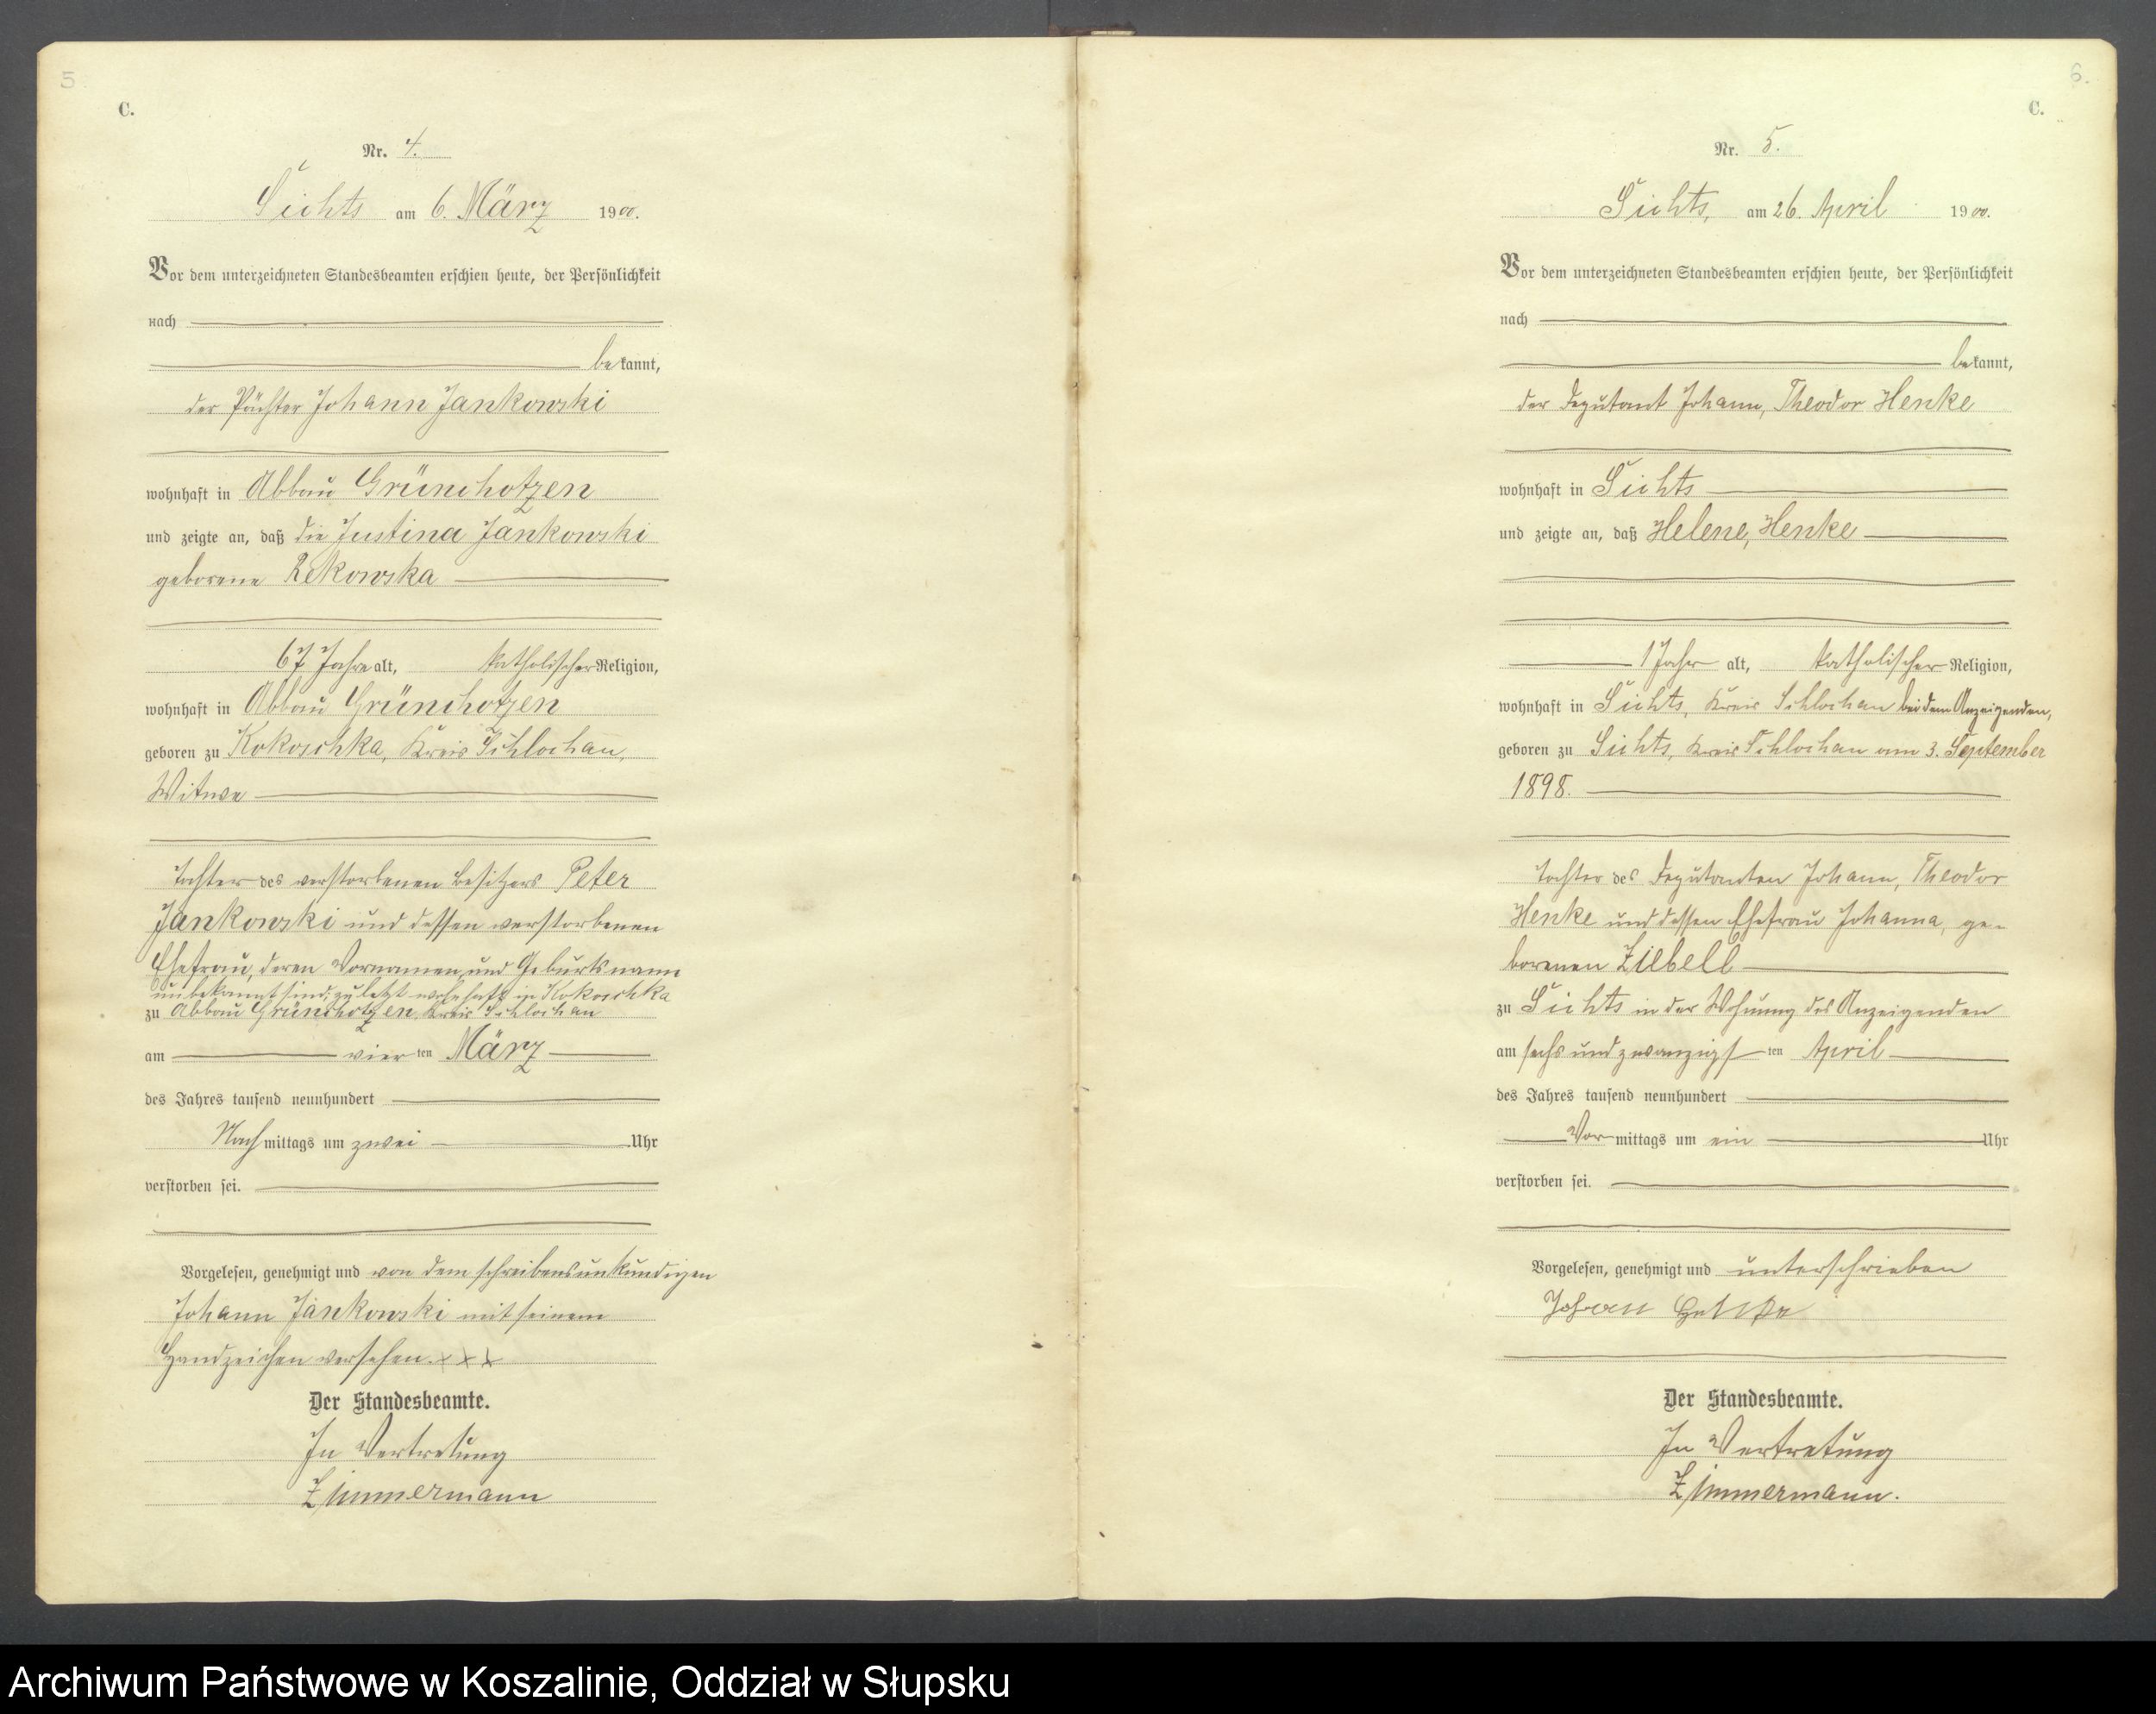 5.
C.
Nr. 4.
Sichts am 6. März 1900.
Vor dem unterzeichneten Standesbeamten erschien heute, der Persönlichkeit
nach
bekannt,
der Pächter Johann Jankowski
wohnhaft in Abbau Grünchotzen
und zeigte an, daß die Justina Jankowski
geborene Rekowska
67 Jahre alt, katholischer Religion,
wohnhaft in Abbau Grünchotzen
geboren zu Kokoschka, Kreis Schlochau,
Witwe
Tochter des verstorbenen Besitzers Peter
Jankowski und dessen verstorbenen
Ehefrau, deren Vornamen und Geburtsname
unbekannt sind, zuletzt wohnhaft in Kokoschka
zu Abbau Grünchotzen, Kreis Schlochau
am vierten März
des Jahres tausend neunhundert
Nachmittags um zwei Uhr
verstorben sei.
Vorgelesen, genehmigt und von dem schreibensunkundigen
Johann Jankowski mit seinem
Handzeichen versehen. x x x
Der Standesbeamte.
In Vertretung
Zimmermann
6.
C.
Nr. 5.
Sichts, am 26. April 1900.
Vor dem unterzeichneten Standesbeamten erschien heute, der Persönlichkeit
nach
bekannt,
der Deputant Johann, Theodor Henke
wohnhaft in Sichts
und zeigte an, daß Helene, Henke
1 Jahr alt, katholischer Religion,
wohnhaft in Sichts, Kreis Schlochau bei dem Anzeigenden,
geboren zu Sichts, Kreis Schlochau am 3. September
1898.
Tochter des Deputanten Johann, Theodor
Henke und dessen Ehefrau Johanna, ge-
borenen Ziebell
zu Sichts in der Wohnung des Anzeigenden
am sechs und zwanzigsten April
des Jahres tausend neunhundert
Vormittags um ein Uhr
verstorben sei.
Vorgelesen, genehmigt und unterschrieben
Johann Henke
Der Standesbeamte.
In Vertretung
Zimmermann.
Archiwum Państwowe w Koszalinie, Oddział w Słupsku